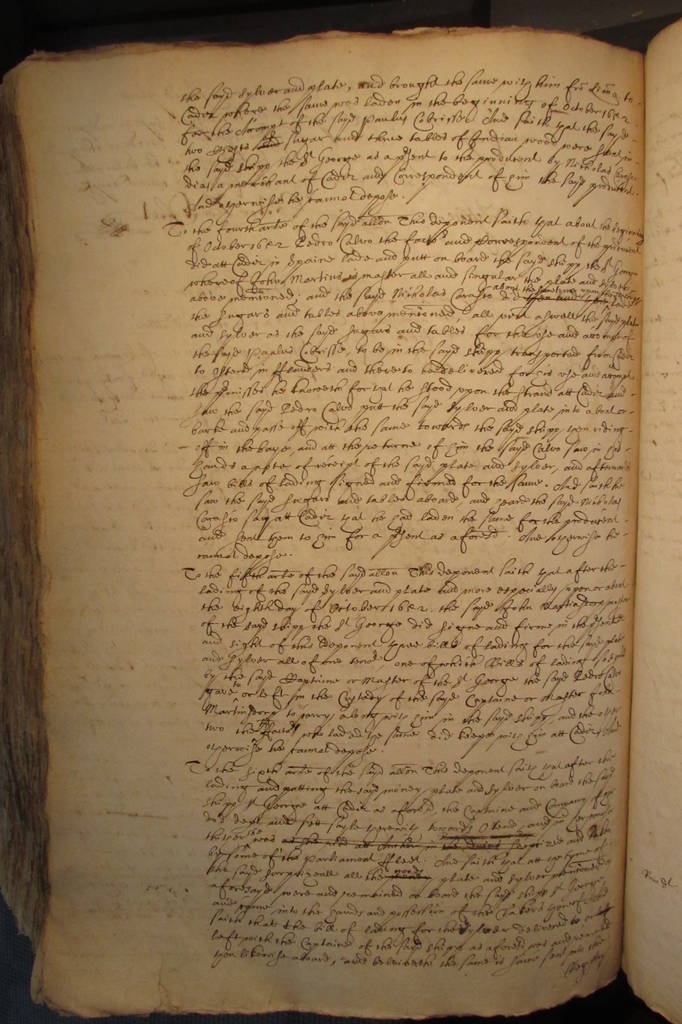 the sayd sylver and plate, and brought the same with him to
Cadiz where the same was laden in the beginning of October 1652
for the Accompt of the sayd Paulus Cibrisse. And saith that the sayd
two Chests Sugar and three tables of Indian wood were sent in
the sayd shipp the St George as a present to the producent by Nicholas
a merchant of Cadiz and Correspondent of him the sayd producent
And otherwise he cannot depose.
To the fourth arte of the sayd allon This deponent saith that about the beginning
of October 1652 Pedro Calvo the factor and Correspondent of the producent
did att Cadiz in Spaine lade and putt on board the sayd shipp the St George
whereof John Martins is master all and singular the plate and
above mentioned, and the sayd Nicholas did
the sugars and tables above mentioned, all were aswell the sayd plate
and sylver as the sayd sugars and tables for the use and accompt of
the sayd Paulus Cibrisse, to be in the sayd shipp transported from Cadiz
to Ostend in Flanders and there to bee delivered for his use and accompt
the premisses he knoweth for that he stood upon the strand att Cadiz and
saw the sayd Pedro Calvo putt the sayd sylver and plate into a boat or
barke and passe off with the same towards the sayd shipp then riding
off in the baye, and att the returne of him the sayd Calvo saw in his
hands a note of receipt of the sayd plate and sylver, and afterwards
saw bills of lading signed and firmed for the same. And saith he
saw the sayd sugars and tables aboard, and heard the sayd Nicholas
say att Cadiz that he had laden the same for the producent
and sent them to him for a present as aforesd. And otherwise he
cannot depose.
To the fifth arte of the sayd allon This deponent saith that after the
lading of the sayd sylver and plate and more especially upon or about
the eighth day of October 1652. the sayd John Martinson master
of the sayd shipp the St George did signe and firme in the presence
and sight of this deponent three bills of lading for the sayd plate
and sylver all of one tenor, one of which bills of lading so signed
by the sayd Captaine or Master of the St George the sayd Pedro Calvo
gave to or left in the Custody of the sayd Captaine or Master John
Martinson to carry along with him in the sayd shipp, and the other
two the factor who laded the same did keepe with him att Cadiz, And
otherwise he cannot depose.
To the sixth arte of the sayd allon This deponent saith that after the
lading and putting the sayd money, plate and sylver on board the sayd
shipp St George att Cadiz as aforesd, the Captaine and Company of her
did dept and sett sayle therewith towards Ostend, and in her way
thither was surprized and taken
by some of the Parliament Fleet. And saith that att the tyme of
the sayd surprizall all the plate and sylver
aforesayd were and remained on board the sayd shipp St George
and came into the hands and possession of the Takers
saith that the bill of lading for the sylver delivered to or
left with the Captaine of the sayd shipp as aforesd was and remained
then likewise aboard, and beleiveth the same is